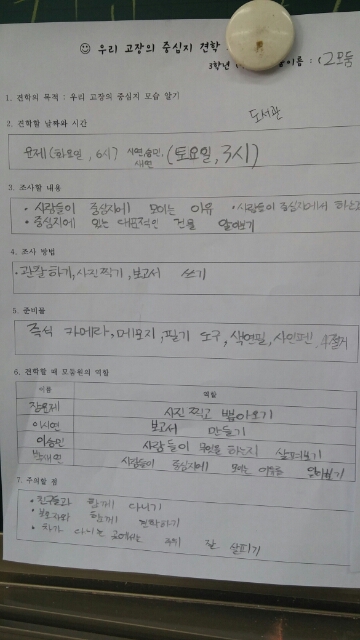 ☺ 우리 고장의 중심지 견학
3학년 이름 : (2모둠
1. 견학의 목적 : 우리 고장의 중심지 모습 알기
도서관
2. 견학할 날짜와 시간
윤제(화요일, 6시) 시연, 승민, (토요일, 3시)
3. 조사할 내용
• 사람들이 중심지에 모이는 이유 • 사람들이 중심지에서 하는
• 중심지에 있는 대표적인 건물 알아보기
4. 조사 방법
• 관찰하기, 사진찍기, 보고서 쓰기
5. 준비물
즉석 카메라, 메모지, 필기 도구, 색연필, 사인펜,
6. 견학할 때 모둠원의 역할
이름 역할
장윤제 사진 찍고 뽑아오기
이시연 보고서 만들기
이승민 사람들이 무엇을 하는지 살펴보기
사람들이 중심지에 모이는 이유를 알아보기
7. 주의할 점
• 친구들과 함께 다니기
• 보호자와 함께 견학하기
• 차가 다니는 곳에서는 주위 잘 살피기